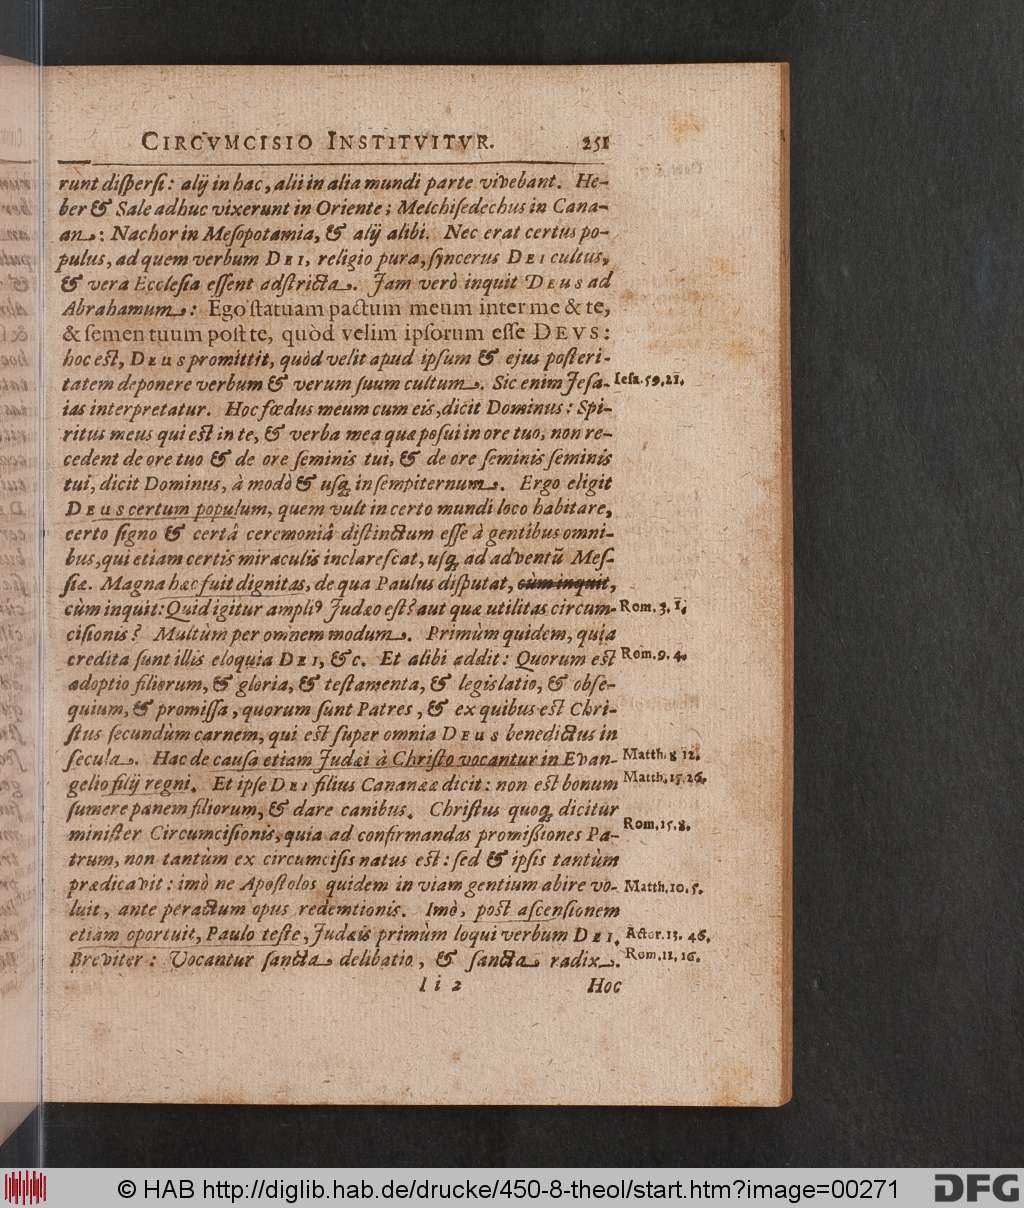 CIRCVMCISIO INSTITVITVR. 251
runt disperſi: alij in hac, alii in alia mundi parte vivebant. He-
ber & Sale adhuc vixerunt in Oriente; Melchiſedechus in Cana-
an: Nachor in Meſopotamia, & alij alibi. Nec erat certus po-
pulus, ad quem verbum DEI, religio pura, ſyncerus DEI cultus,
& vera Eccleſia eſſent adſtricta. Jam verò inquit DEUS ad
Abrahamum: Ego ſtatuam pactum meum inter me & te,
& ſemen tuum poſt te, quòd velim ipſorum eſſe DEVS:
hoc eſt, DEUS promittit, quòd velit apud ipſum & ejus poſteri-
tatem deponere verbum & verum ſuum cultum. Sic enim Jeſa- Ieſa. 59. 21.
ias interpretatur. Hoc fœdus meum cum eis, dicit Dominus: Spi-
ritus meus qui eſt in te, & verba mea quæ poſui in ore tuo, non re-
cedent de ore tuo & de ore ſeminis tui, & de ore ſeminis ſeminis
tui, dicit Dominus, à modò & uſq; in ſempiternum. Ergo eligit
DEUS certum populum, quem vult in certo mundi loco habitare,
certo ſigno & certâ ceremoniâ diſtinctum eſſe à gentibus omni-
bus, qui etiam certis miraculis inclareſcat, uſq; ad adventũ Meſ-
ſiæ. Magna hæc fuit dignitas, de qua Paulus diſputat, cùm inquit,
cùm inquit: Quid igitur ampliꝰ Judæo eſt? aut quæ utilitas circum- Rom. 3. 1.
ciſionis? Multùm per omnem modum. Primùm quidem, quia
credita ſunt illis eloquia DEI, &c. Et alibi addit: Quorum eſt Rom. 9. 4.
adoptio filiorum, & gloria, & teſtamenta, & legislatio, & obſe-
quium, & promiſſa, quorum ſunt Patres, & ex quibus eſt Chri-
ſtus ſecundùm carnem, qui eſt ſuper omnia DEUS benedictus in
ſecula. Hac de cauſa etiam Judæi à Chriſto vocantur in Evan- Matth. 8. 12.
gelio filij regni. Et ipſe DEI filius Cananææ dicit: non eſt bonum Matth. 15. 26.
ſumere panem filiorum, & dare canibus. Chriſtus quoq; dicitur
miniſter Circumciſionis, quia ad confirmandas promiſsiones Pa- Rom. 15. 8.
trum, non tantùm ex circumciſis natus eſt: ſed & ipſis tantùm
prædicavit: imò ne Apoſtolos quidem in viam gentium abire vo- Matth. 10. 5.
luit, ante peractum opus redemtionis. Imò, poſt aſcenſionem
etiam oportuit, Paulo teſte, Judæis primùm loqui verbum DEI. Actor. 13. 46.
Breviter: Vocantur ſancta delibatio, & ſancta radix. Rom. 11. 16.
Ii 2 Hoc
© HAB http://diglib.hab.de/drucke/450-8-theol/start.htm?image=00271
DFG